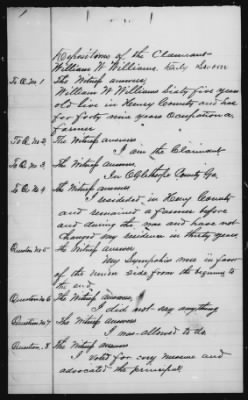 Deposition of the Claimant
William W. Williams duly Sworn
To Q. No 1 The Witness answers,
William W Williams Sixty five years
old live in Henry County and have
for forty nine years Occupation a
Farmer
To Q. No 2 The Witness answers
I am the Claimant
To Q. No 3 The Witness answers,
In Oglethorpe County Ga.
To Q. No 4 The Witness answers
I resided in Henry County
and remained a farmer before
and during the war and have not
changed my residence in thirty years
Question No 5 The Witness answers
My Sympathies was in favor
of the union side from the begining to
the end.
Question No 6 The Witness answers
I did not say anything
Question No 7 The Witness answers
I was allowed to do
Question, 8 The Witness answers
I voted for measure and
advocated the principal